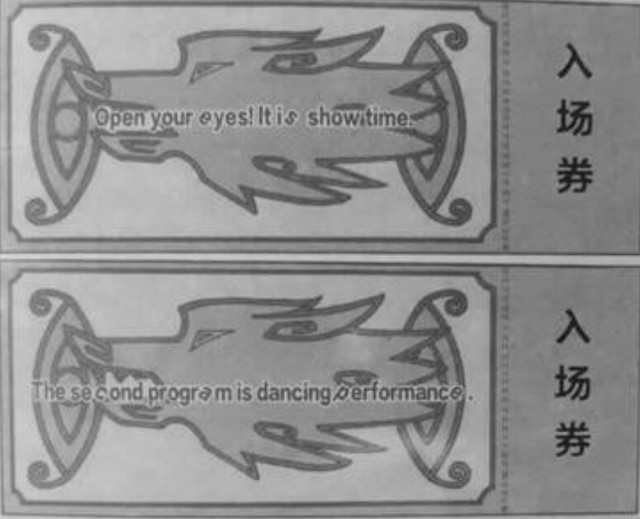 Open your eyes! It is showtime.
入场券
The second program is dancing performance.
入场券